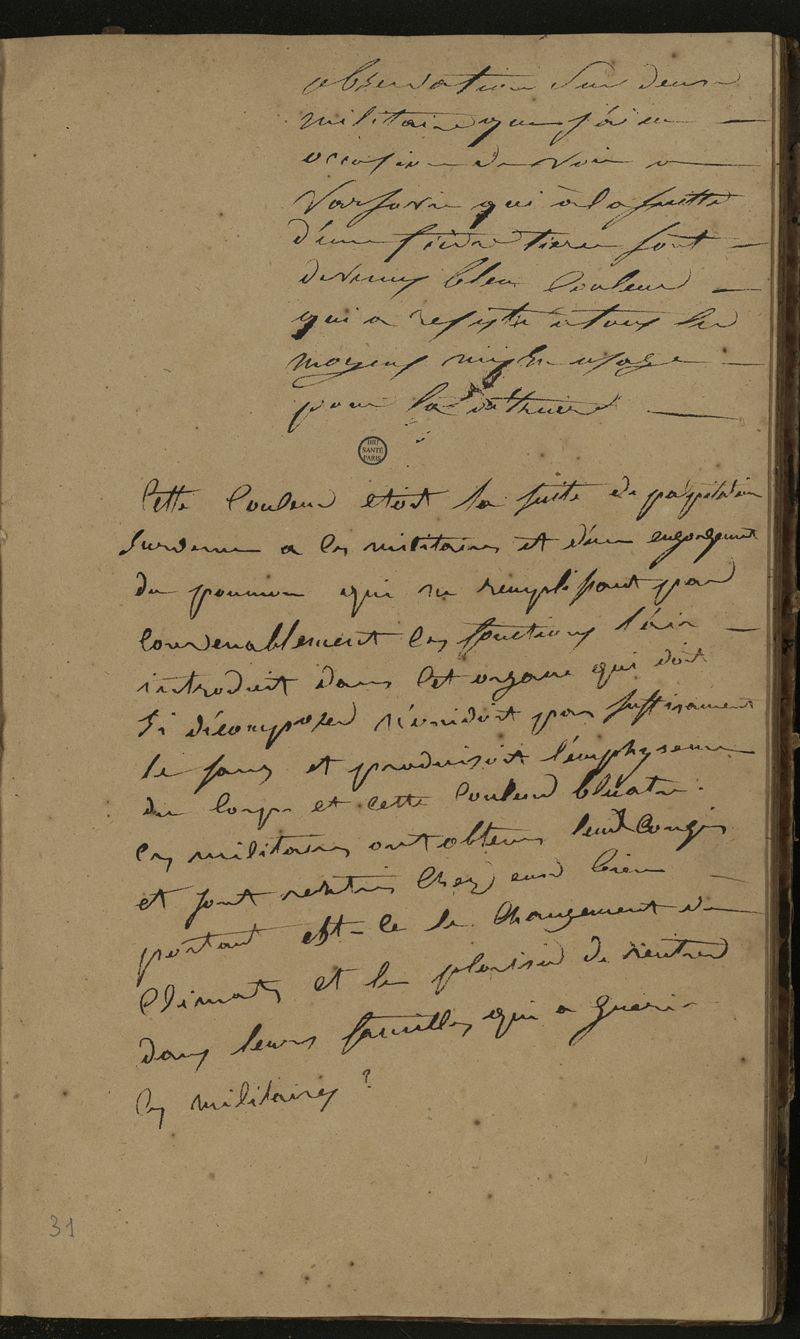 observation sur deux
militaire que j'ai eu
occasion de voir a
Varsovie qui à la suitte
d'une fievre tierce sont
devenus bleu Couleur
qui a resisté a tous les
moyens mis en usage
pour la détruire
BIU
SANTÉ
PARIS
Cette Couleur etoit la suite de palpitation
survenue a ces militaires et d'un engorgement
du poumon qui ne remplissant pas
Convenablement ces fonctions l'air
introduit dans cet organe qui doit
si décomposer n'oxidoit pas suffisament
le sang et produisoit l'emphyseme
du Corps et cette Couleur bleuatre.
ces militaires ont obtenu leurs Congés
et sont rentrés Chez eux bien
portant est-ce le Changement de
Climats et le plaisir de rentrer
dans leurs familles qui a gueri
ces militaires ?
31